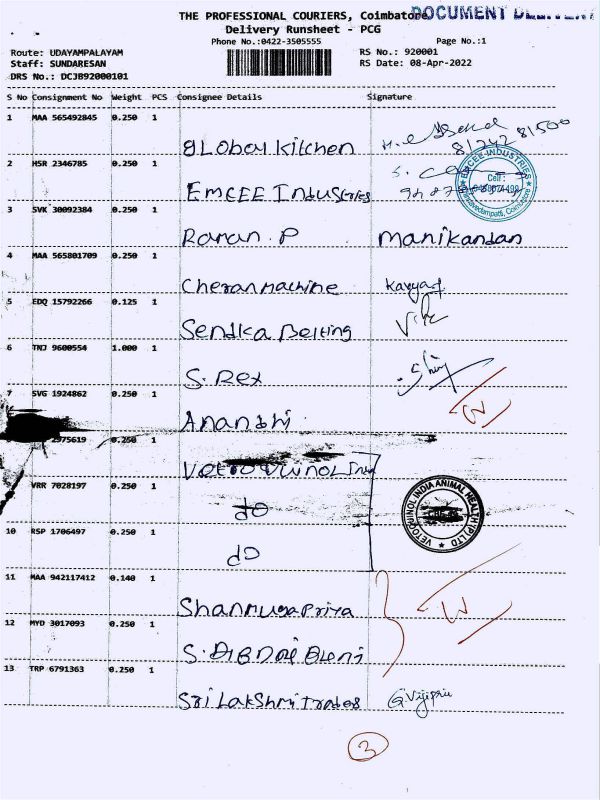 THE PROFESSIONAL COURIERS, Coimbatore
DOCUMENT
Delivery Runsheet - PCG
Phone No.:0422-3505555
Page No.:1
Route: UDAYAMPALAYAM
RS No.: 920001
Staff: SUNDARESAN
RS Date: 08-Apr-2022
DRS No.: DCJB92000101
S No Consignment No Weight PCS Consignee Details Signature
1 MAA 565492845 0.250 1
Global Kitchen
81242 81500
2 HSR 2346785 0.250 1
EMCEE Industries
EMCEE INDUSTRIES
Cell :
3 SVK 30092384 0.250 1
Raran. P Manikandan
4 MAA 565801709 0.250 1
Cheran Machine
5 EDQ 15792266 0.125 1
Sendka Belting
6 TNJ 9600554 1.000 1
S. Rex
7 SVG 1924862 0.250 1
Anandhi
2975619 0.250 1
VRR 7028197 0.250 1
do
VETOQUINOL INDIA ANIMAL HEALTH (P) LTD
10 RSP 1706497 0.250 1
do
11 MAA 942117412 0.140 1
Shanmuga Priya
12 MYD 3017093 0.250 1
13 TRP 6791363 0.250 1
Sri Lakshmi Trades
3